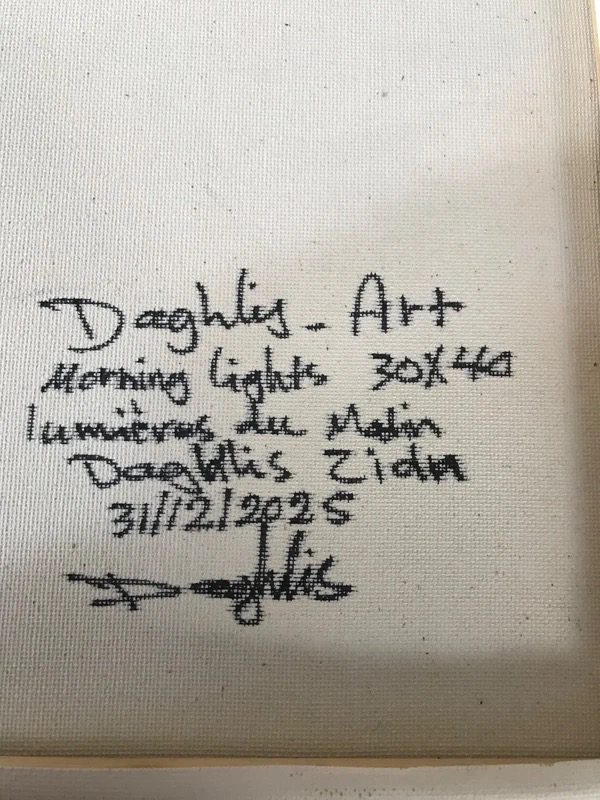 Daghlis_Art
Morning lights 30X40
lumières du Matin
Daghlis Zidn
31/12/2025
Daghlis